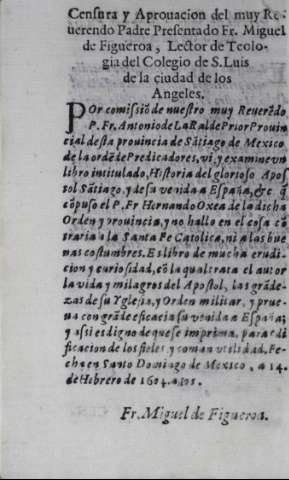 Censura y Aprouacion del muy Re-
uerendo Padre Presentado Fr. Miguel
de Figueroa, Lector de Teolo-
gia del Colegio de S. Luis
de la çiudad de los
Angeles.
POr comissiõ de nuestro muy Reuerẽdo
P. Fr. Antonio de La Ralde Prior Prouin
cial desta prouincia de Sãtiago de Mexico
de la ordẽ de Predicadores, vi, y examine vn
libro intitulado, Historia del glorioso Apos
tol Sãtiago, y de su venida a España, &c q̃
cõpuso el P. Fr Hernando Oxea de la dicha
Orden y prouincia, y no hallo en el cosa cõ
traria a la Santa Fe Catolica, ni a las bue
nas costumbres. Es libro de mucha erudi
cion y curiosidad, cõ la qual trata el autor
la vida y milagros del Apostol, las grãde-
zas de su Yglesia, y Orden militar, y prue-
ua con grãde eficacia su venida a España;
y assi es digno de que se imprima, para edi
ficacion de los fieles y comun vtilidad. Fe-
cha en Santo Domingo de Mexico, a 14.
de Hebrero de 1604. años.
Fr. Miguel de Figueroa.